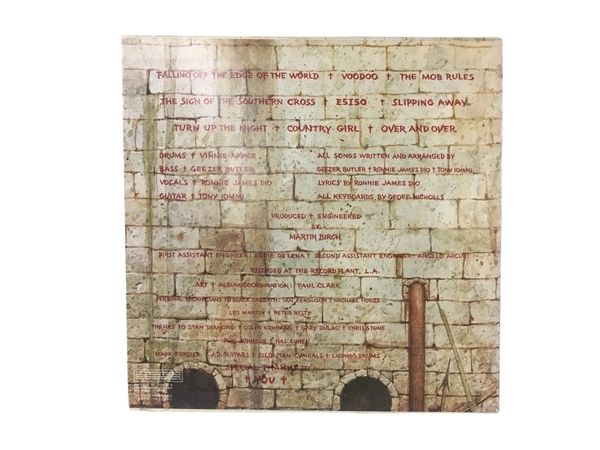 FALLING OFF THE EDGE OF THE WORLD † VOODOO † THE MOB RULES
THE SIGN OF THE SOUTHERN CROSS † E5150 † SLIPPING AWAY
TURN UP THE NIGHT † COUNTRY GIRL † OVER AND OVER
DRUMS † VINNIE APPICE
BASS † GEEZER BUTLER
VOCALS † RONNIE JAMES DIO
GUITAR † TONY IOMMI
ALL SONGS WRITTEN AND ARRANGED BY
GEEZER BUTLER † RONNIE JAMES DIO † TONY IOMMI
LYRICS BY RONNIE JAMES DIO
ALL KEYBOARDS BY GEOFF NICHOLLS
PRODUCED † ENGINEERED
BY
MARTIN BIRCH
FIRST ASSISTANT ENGINEER: EDDIE DE LENA † SECOND ASSISTANT ENGINEER: ANGELO ARCURI
RECORDED AT THE RECORD PLANT, L.A.
ART † ALBUM COORDINATION: PAUL CLARK
PERSONAL TECHNICIANS TO BLACK SABBATH: IAN FERGUSON † MICHAEL
LES MARTIN † PETER RESTY
THANKS TO STAN DIAMOND † COLIN NEWMAN † GARY DULAC † CHRIS STONE
PHIL JOHNSON † HAS COHEN
MARK FORSTER † J.D. GUITARS † ZILDJIAN CYMBALS † LUDWIG DRUMS
SPECIAL THANKS TO
† YOU †